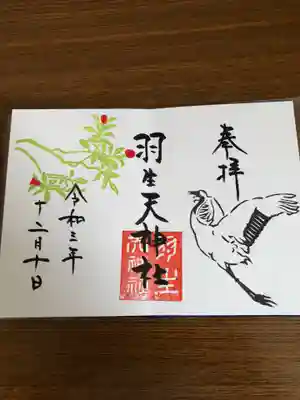 奉拝
羽生天神社
令和三年
十二月十日